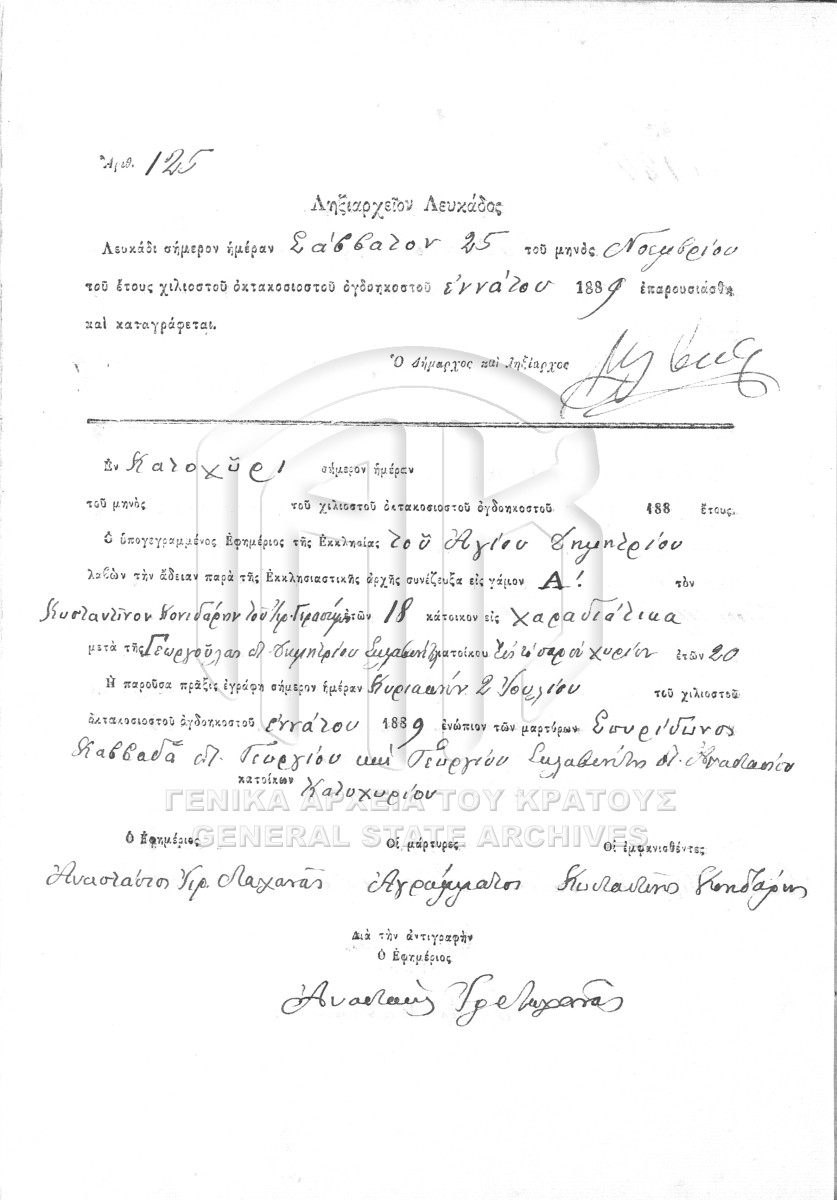 Ἀριθ. 125
Ληξιαρχεῖον Λευκάδος
Λευκάδι σήμερον ἡμέραν Σάββατον 25 τοῦ μηνὸς Νοεμβρίου
τοῦ ἔτους χιλιοστοῦ ὀκτακοσιοστοῦ ὀγδοηκοστοῦ ἐννάτου 1889 ἐπαρουσιάσθη
καὶ καταγράφεται.
Ὁ Δήμαρχος καὶ Ληξίαρχος
Ἐν Κατοχῶρι σήμερον ἡμέραν
τοῦ μηνὸς τοῦ χιλιοστοῦ ὀκτακοσιοστοῦ ὀγδοηκοστοῦ 188 ἔτους.
Ὁ ὑπογεγραμμένος Ἐφημέριος τῆς Ἐκκλησίας τοῦ Ἁγίου Δημητρίου
λαβὼν τὴν ἄδειαν παρὰ τῆς Ἐκκλησιαστικῆς ἀρχῆς συνέζευξα εἰς γάμον Α! τὸν
Κοσταντῖνον Κονιδάρην τοῦ ἐτῶν 18 κάτοικον εἰς Χαραδιάτικα
μετὰ τῆς Γεωργούλας Δημητρίου κατοίκου ἐτῶν 20
Ἡ παροῦσα πρᾶξις ἐγράφη σήμερον ἡμέραν Κυριακὴν 2 Ἰουλίου τοῦ χιλιοστοῦ
ὀκτακοσιοστοῦ ὀγδοηκοστοῦ ἐννάτου 1889 ἐνώπιον τῶν μαρτύρων Σπυρίδωνος
Καββαδᾶ Γεωργίου καὶ Γεωργίου Σκλαβενίτης Ἀναστασίου
κατοίκων Κατοχωρίου
ΓΕΝΙΚΑ ΑΡΧΕΙΑ ΤΟΥ ΚΡΑΤΟΥΣ
GENERAL STATE ARCHIVES
Ὁ Ἐφημέριος Οἱ μάρτυρες Οἱ ἐμφανισθέντες
Ἀναστάσιος Ἀγράμματοι Κωσταντῖνος Κονηδάρης
Διὰ τὴν ἀντιγραφὴν
Ὁ Ἐφημέριος